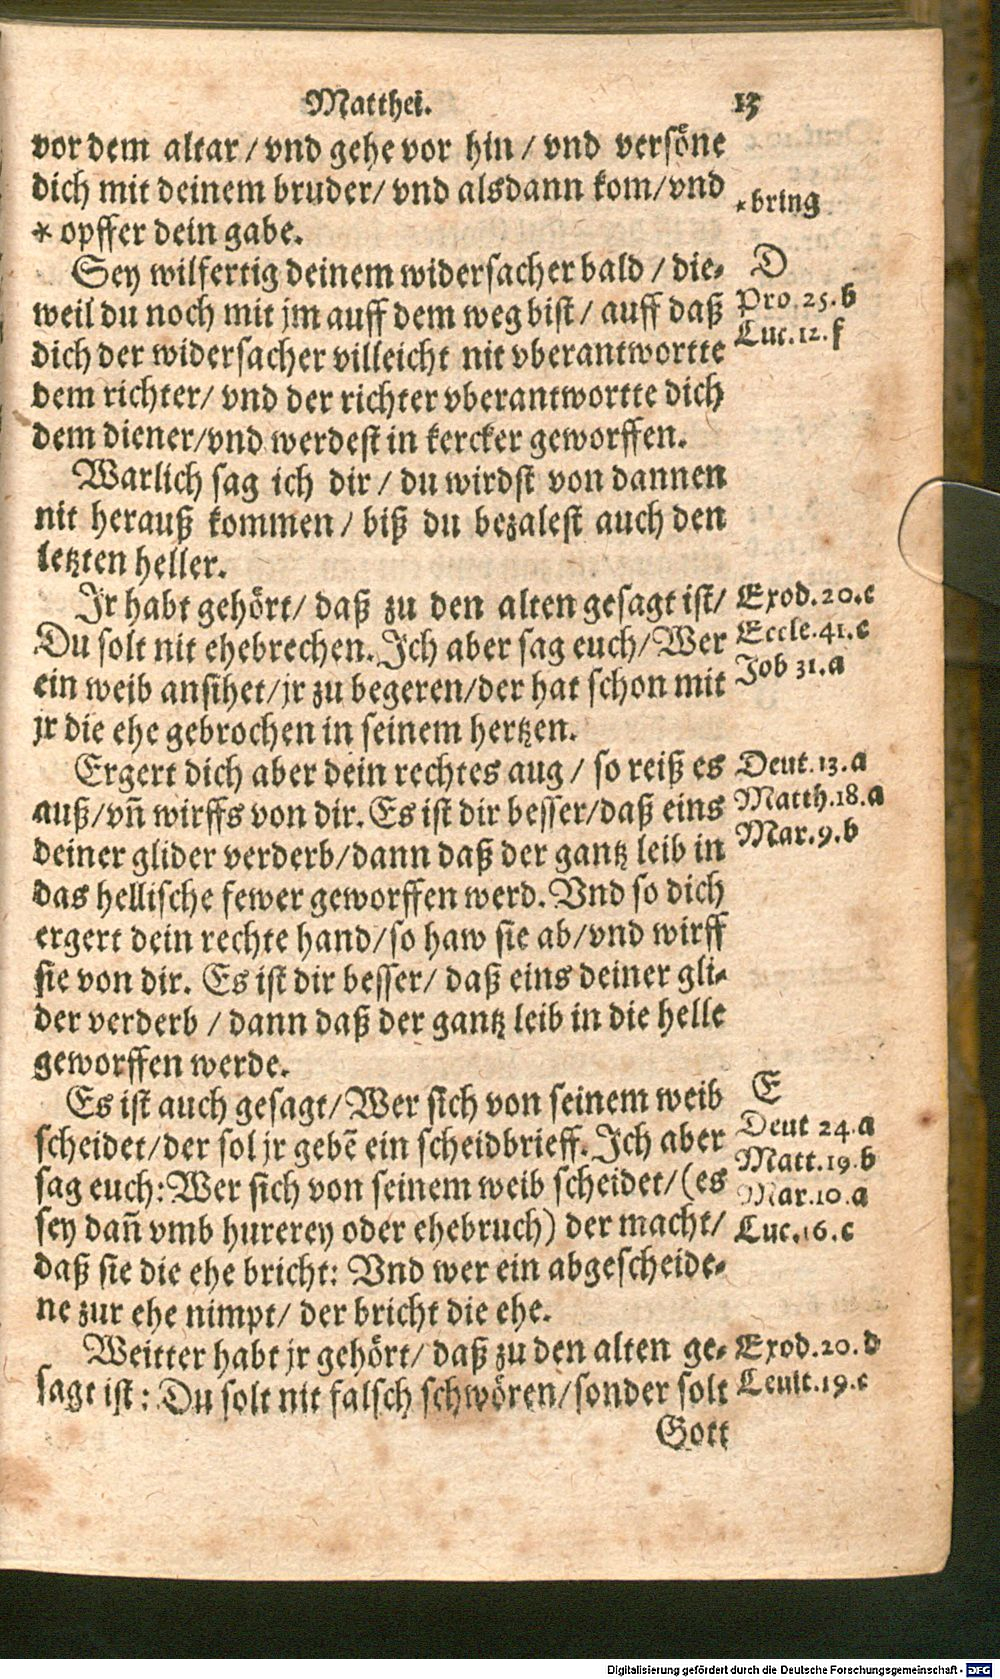 Matthei. 13
vor dem altar / vnd gehe vor hin / vnd versöne
dich mit deinem bruder / vnd alsdann kom / vnd
* opffer dein gabe.
*bring
Sey wilfertig deinem widersacher bald / die⸗
weil du noch mit jm auff dem weg bist / auff daß
dich der widersacher villeicht nit vberantwortte
dem richter / vnd der richter vberantwortte dich
dem diener / vnd werdest in kercker geworffen.
D
Pro. 25. b
Luc. 12. f
Warlich sag ich dir / du wirdst von dannen
nit herauß kommen / biß du bezalest auch den
letzten heller.
Jr habt gehört / daß zu den alten gesagt ist /
Du solt nit ehebrechen. Ich aber sag euch / Wer
ein weib ansihet / jr zu begeren / der hat schon mit
jr die ehe gebrochen in seinem hertzen.
Exod. 20. c
Eccle. 41. c
Job 31. a
Ergert dich aber dein rechtes aug / so reiß es
auß / vñ wirffs von dir. Es ist dir besser / daß eins
deiner glider verderb / dann daß der gantz leib in
das hellische fewer geworffen werd. Vnd so dich
ergert dein rechte hand / so haw sie ab / vnd wirff
sie von dir. Es ist dir besser / daß eins deiner gli⸗
der verderb / dann daß der gantz leib in die helle
geworffen werde.
Deut. 13. a
Matth. 18. a
Mar. 9. b
Es ist auch gesagt / Wer sich von seinem weib
scheidet / der sol jr gebẽ ein scheidbrieff. Ich aber
sag euch: Wer sich von seinem weib scheidet / (es
sey dañ vmb hurerey oder ehebruch) der macht /
daß sie die ehe bricht: Vnd wer ein abgescheide⸗
ne zur ehe nimpt / der bricht die ehe.
E
Deut 24. a
Matt. 19. b
Mar. 10. a
Luc. 16. c
Weitter habt jr gehört / daß zu den alten ge⸗
sagt ist: Du solt nit falsch schwören / sonder solt
Exod. 20. d
Leuit. 19. c
Gott
Digitalisierung gefördert durch die Deutsche Forschungsgemeinschaft - DFG